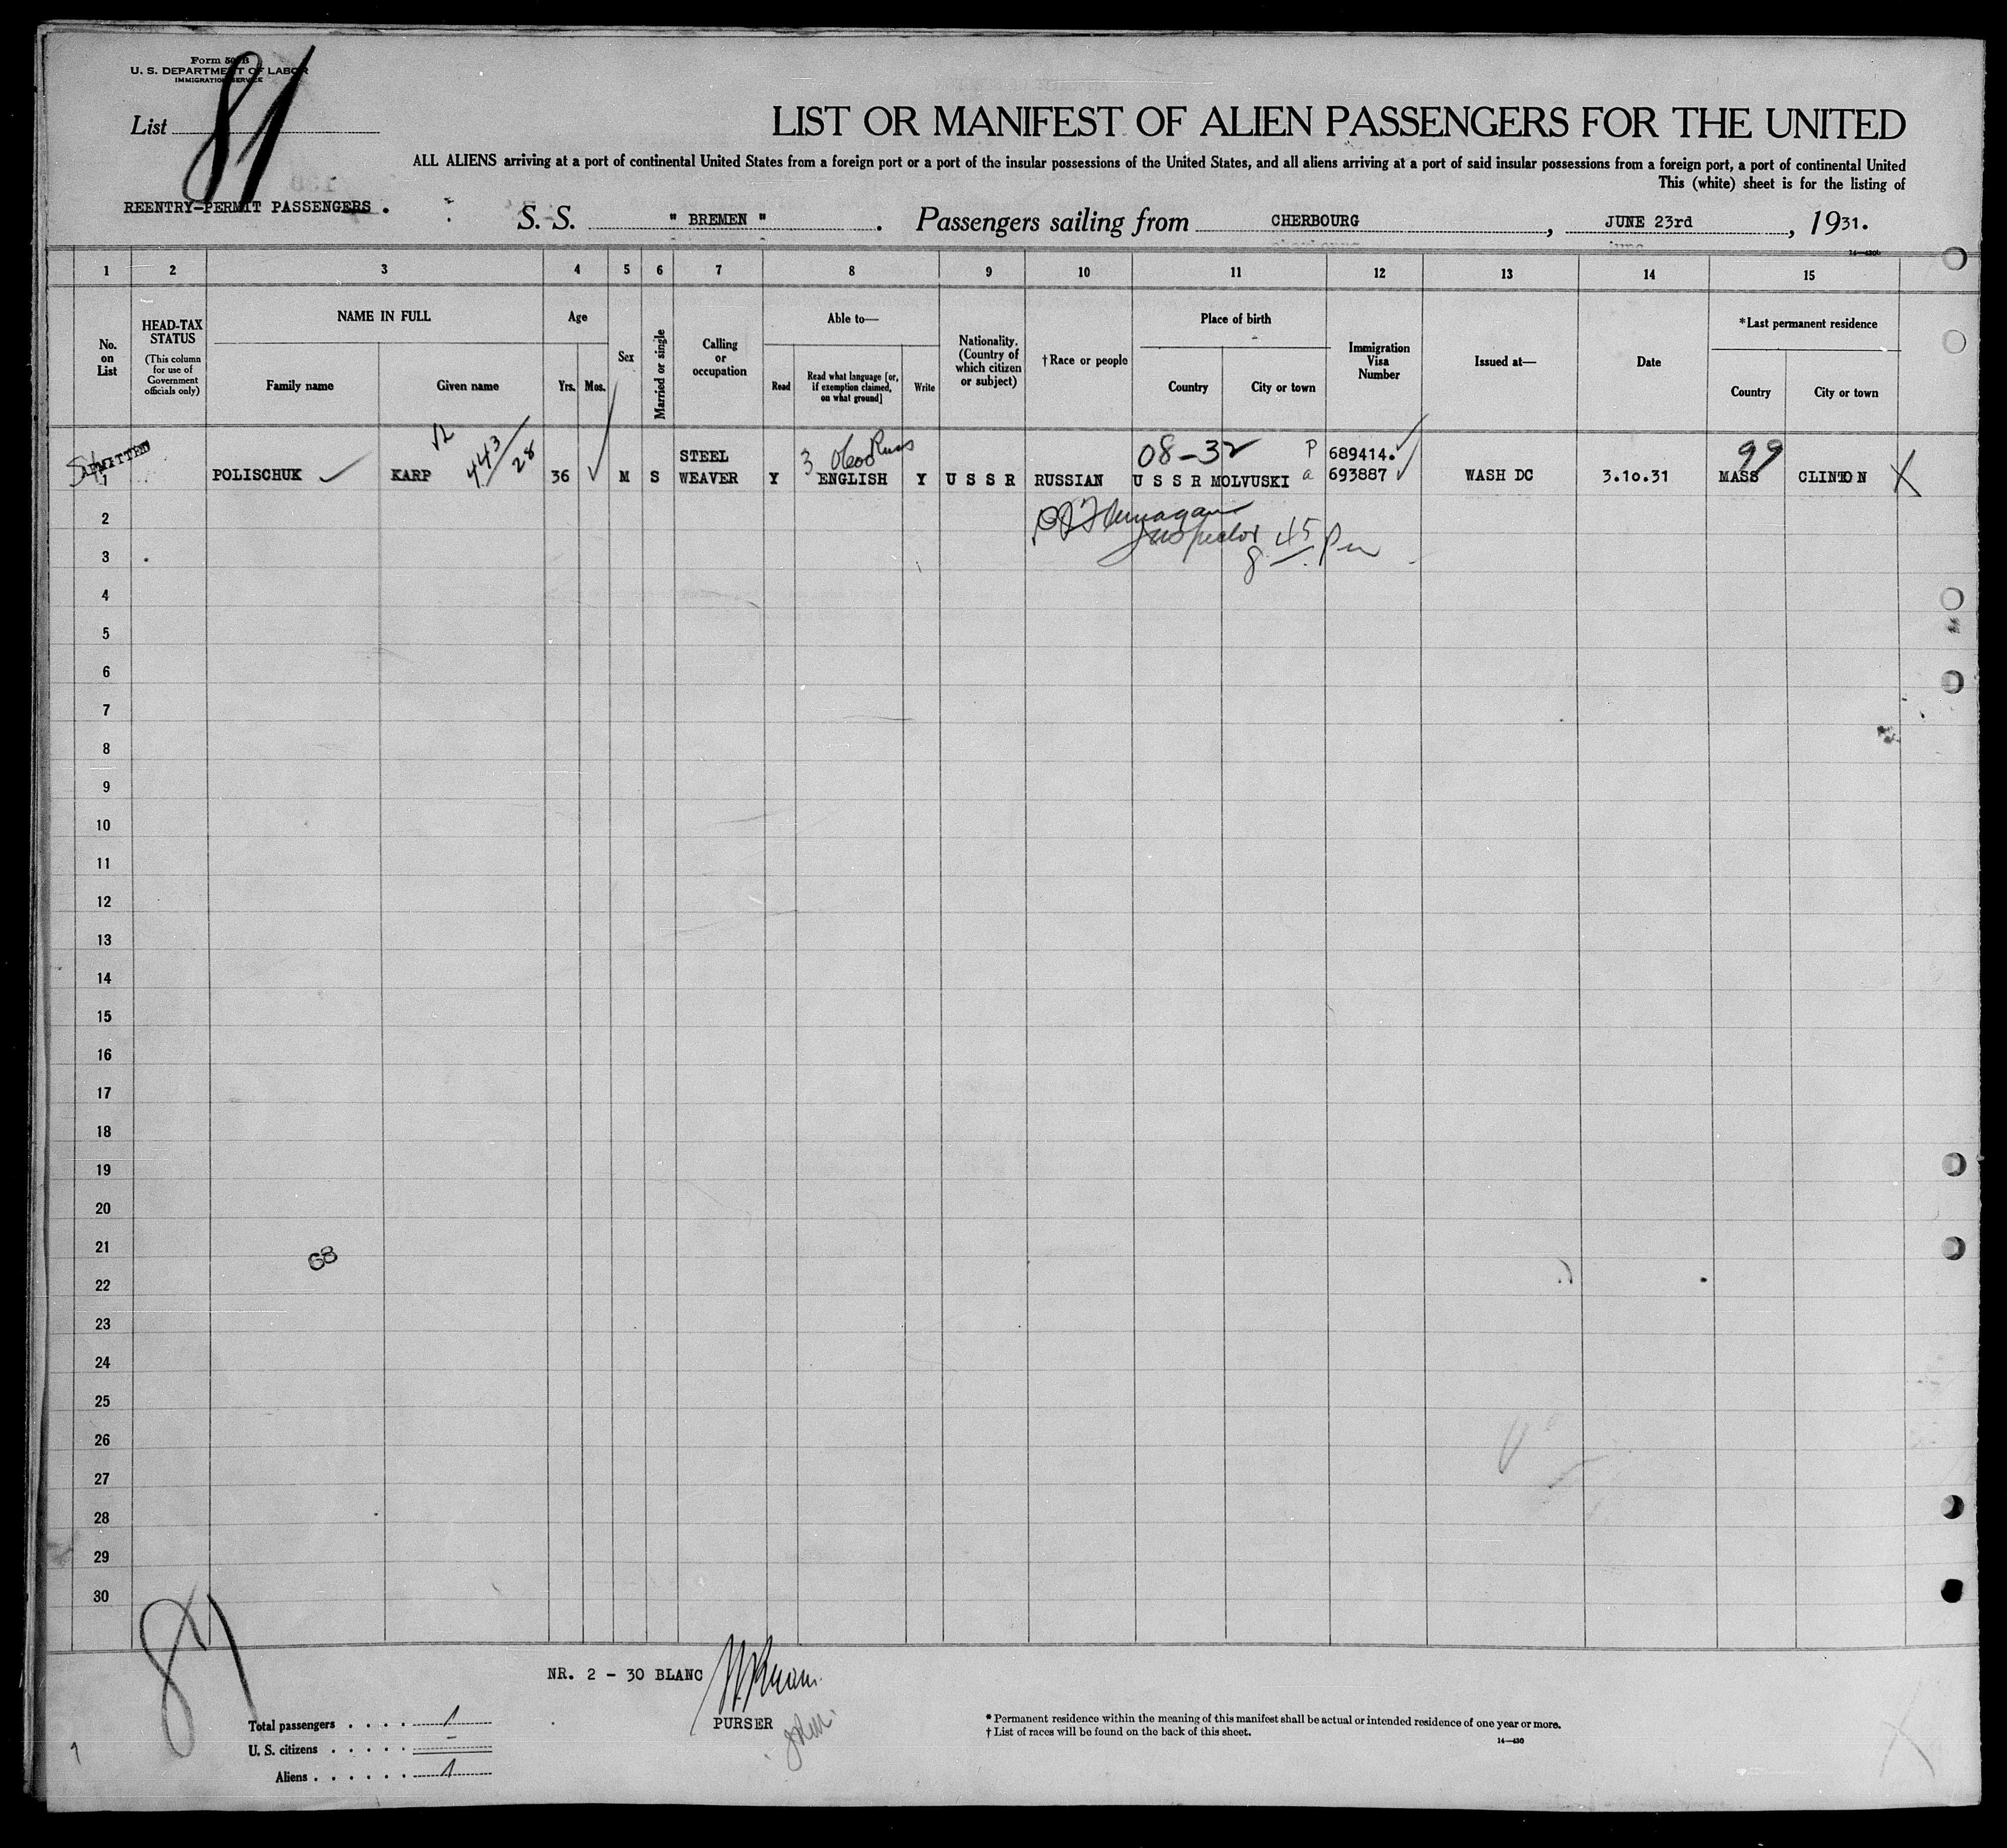 Form 500 B
U. S. DEPARTMENT OF LABOR
IMMIGRATION SERVICE
List 81
LIST OR MANIFEST OF ALIEN PASSENGERS FOR THE UNITED
ALL ALIENS arriving at a port of continental United States from a foreign port or a port of the insular possessions of the United States, and all aliens arriving at a port of said insular possessions from a foreign port, a port of continental United
This (white) sheet is for the listing of
REENTRY-PERMIT PASSENGERS .
S. S. " BREMEN " . Passengers sailing from CHERBOURG , JUNE 23rd , 1931.
14—430b
1 2 3 4 5 6 7 8 9 10 11 12 13 14 15
No. on List
HEAD-TAX STATUS (This column for use of Government officials only)
NAME IN FULL
Family name
Given name
Age
Yrs. Mos.
Sex
Married or single
Calling or occupation
Able to—
Read
Read what language [or, if exemption claimed, on what ground]
Write
Nationality. (Country of which citizen or subject)
†Race or people
Place of birth
Country
City or town
Immigration Visa Number
Issued at—
Date
*Last permanent residence
Country
City or town
ADMITTED
443/28
3 Russ
08-32
P 689414.
99
1 POLISCHUK KARP 36 M S STEEL WEAVER Y ENGLISH Y U S S R RUSSIAN U S S R MOLVUSKI a 693887 WASH DC 3.10.31 MASS CLINTON X
2
Inspector 8 45 Pm
3
4
5
6
7
8
9
10
11
12
13
14
15
16
17
18
19
20
21
68
22
23
24
25
26
27
28
29
30
81
NR. 2 - 30 BLANC
PURSER
Total passengers . . . . 1
U. S. citizens . . . . . –
Aliens . . . . . . 1
* Permanent residence within the meaning of this manifest shall be actual or intended residence of one year or more.
† List of races will be found on the back of this sheet.
14—430